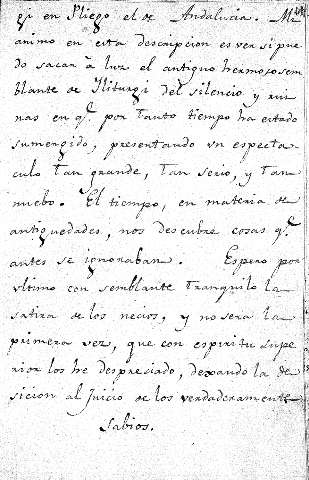 gi en Pliego el de Andalucia. Mi
animo en esta descripcion es ver si pue
do sacar à luz el antiguo hermoso sem
blante de Iliturgi del silencio y rui
nas en q.e por tanto tiempo ha estado
sumergido, presentando un espectá
culo tan grande, tan serio, y tan
nuebo. El tiempo, en materia de
antiguedades, nos descubre cosas q.e
antes se ignoraban. Espero por
ultimo con semblante tranquilo la
satira de los necios, y no sera la
primera vez, que con espiritu supe
rior los he despreciado, dexando la de
sicion al Juicio de los verdaderamente
Sabios.